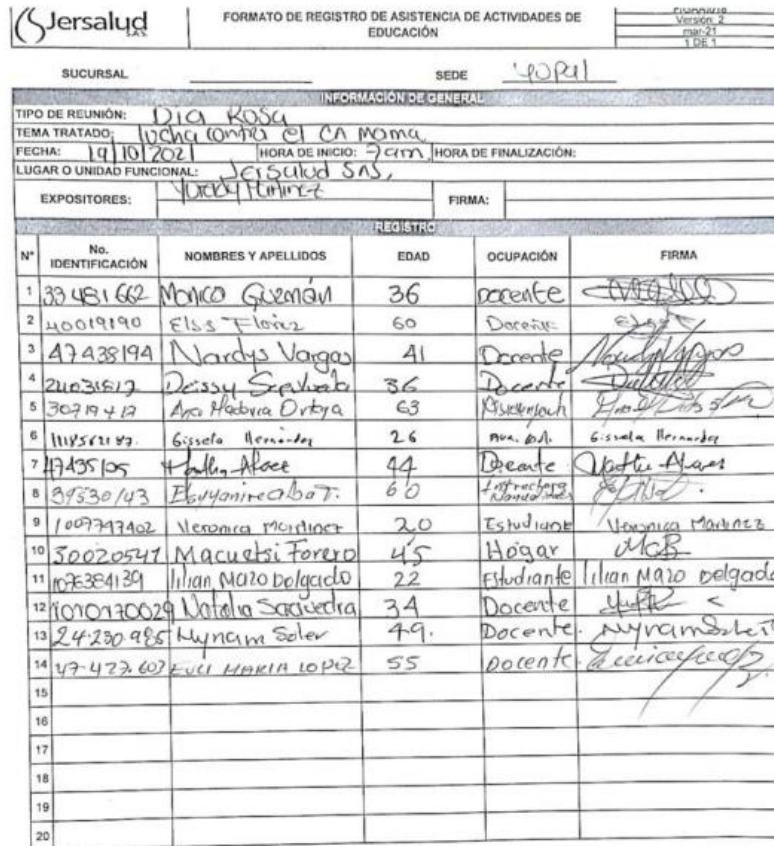 Jersalud
SAS
FORMATO DE REGISTRO DE ASISTENCIA DE ACTIVIDADES DE
EDUCACIÓN
Versión: 2
mar-21
1 DE 1
SUCURSAL SEDE Yopal
INFORMACIÓN DE GENERAL
TIPO DE REUNIÓN: Dia Rosa
TEMA TRATADO: lucha contra el CA mama
FECHA: 19/10/2021 HORA DE INICIO: 7am HORA DE FINALIZACIÓN:
LUGAR O UNIDAD FUNCIONAL: Jersalud SAS,
EXPOSITORES: FIRMA:
REGISTRO
N° No. IDENTIFICACIÓN NOMBRES Y APELLIDOS EDAD OCUPACIÓN FIRMA
1 33481662 Monica Guzmán 36 Docente
2 40019190 60 Docente
3 47438194 Nardys Vargas 41 Docente Nardy Vargas
4 Deissy 36 Docente
5 Ana Ortega 63
6 Gissela Hernandez 26 Gissela Hernandez
7 47435105 44 Docente
8 39530143 60 Instructora
9 1007747402 Veronica Martinez 20 Estudiante Veronica Martinez
10 30020541 Forero 45 Hogar
11 1076384139 lilian Mazo Delgado 22 Estudiante lilian Mazo Delgado
12 1010170029 Natalia Saavedra 34 Docente
13 24.230.985 Myriam Soler 49. Docente.
14 47.427.603 MARIA LOPEZ 55 Docente.
15
16
17
18
19
20